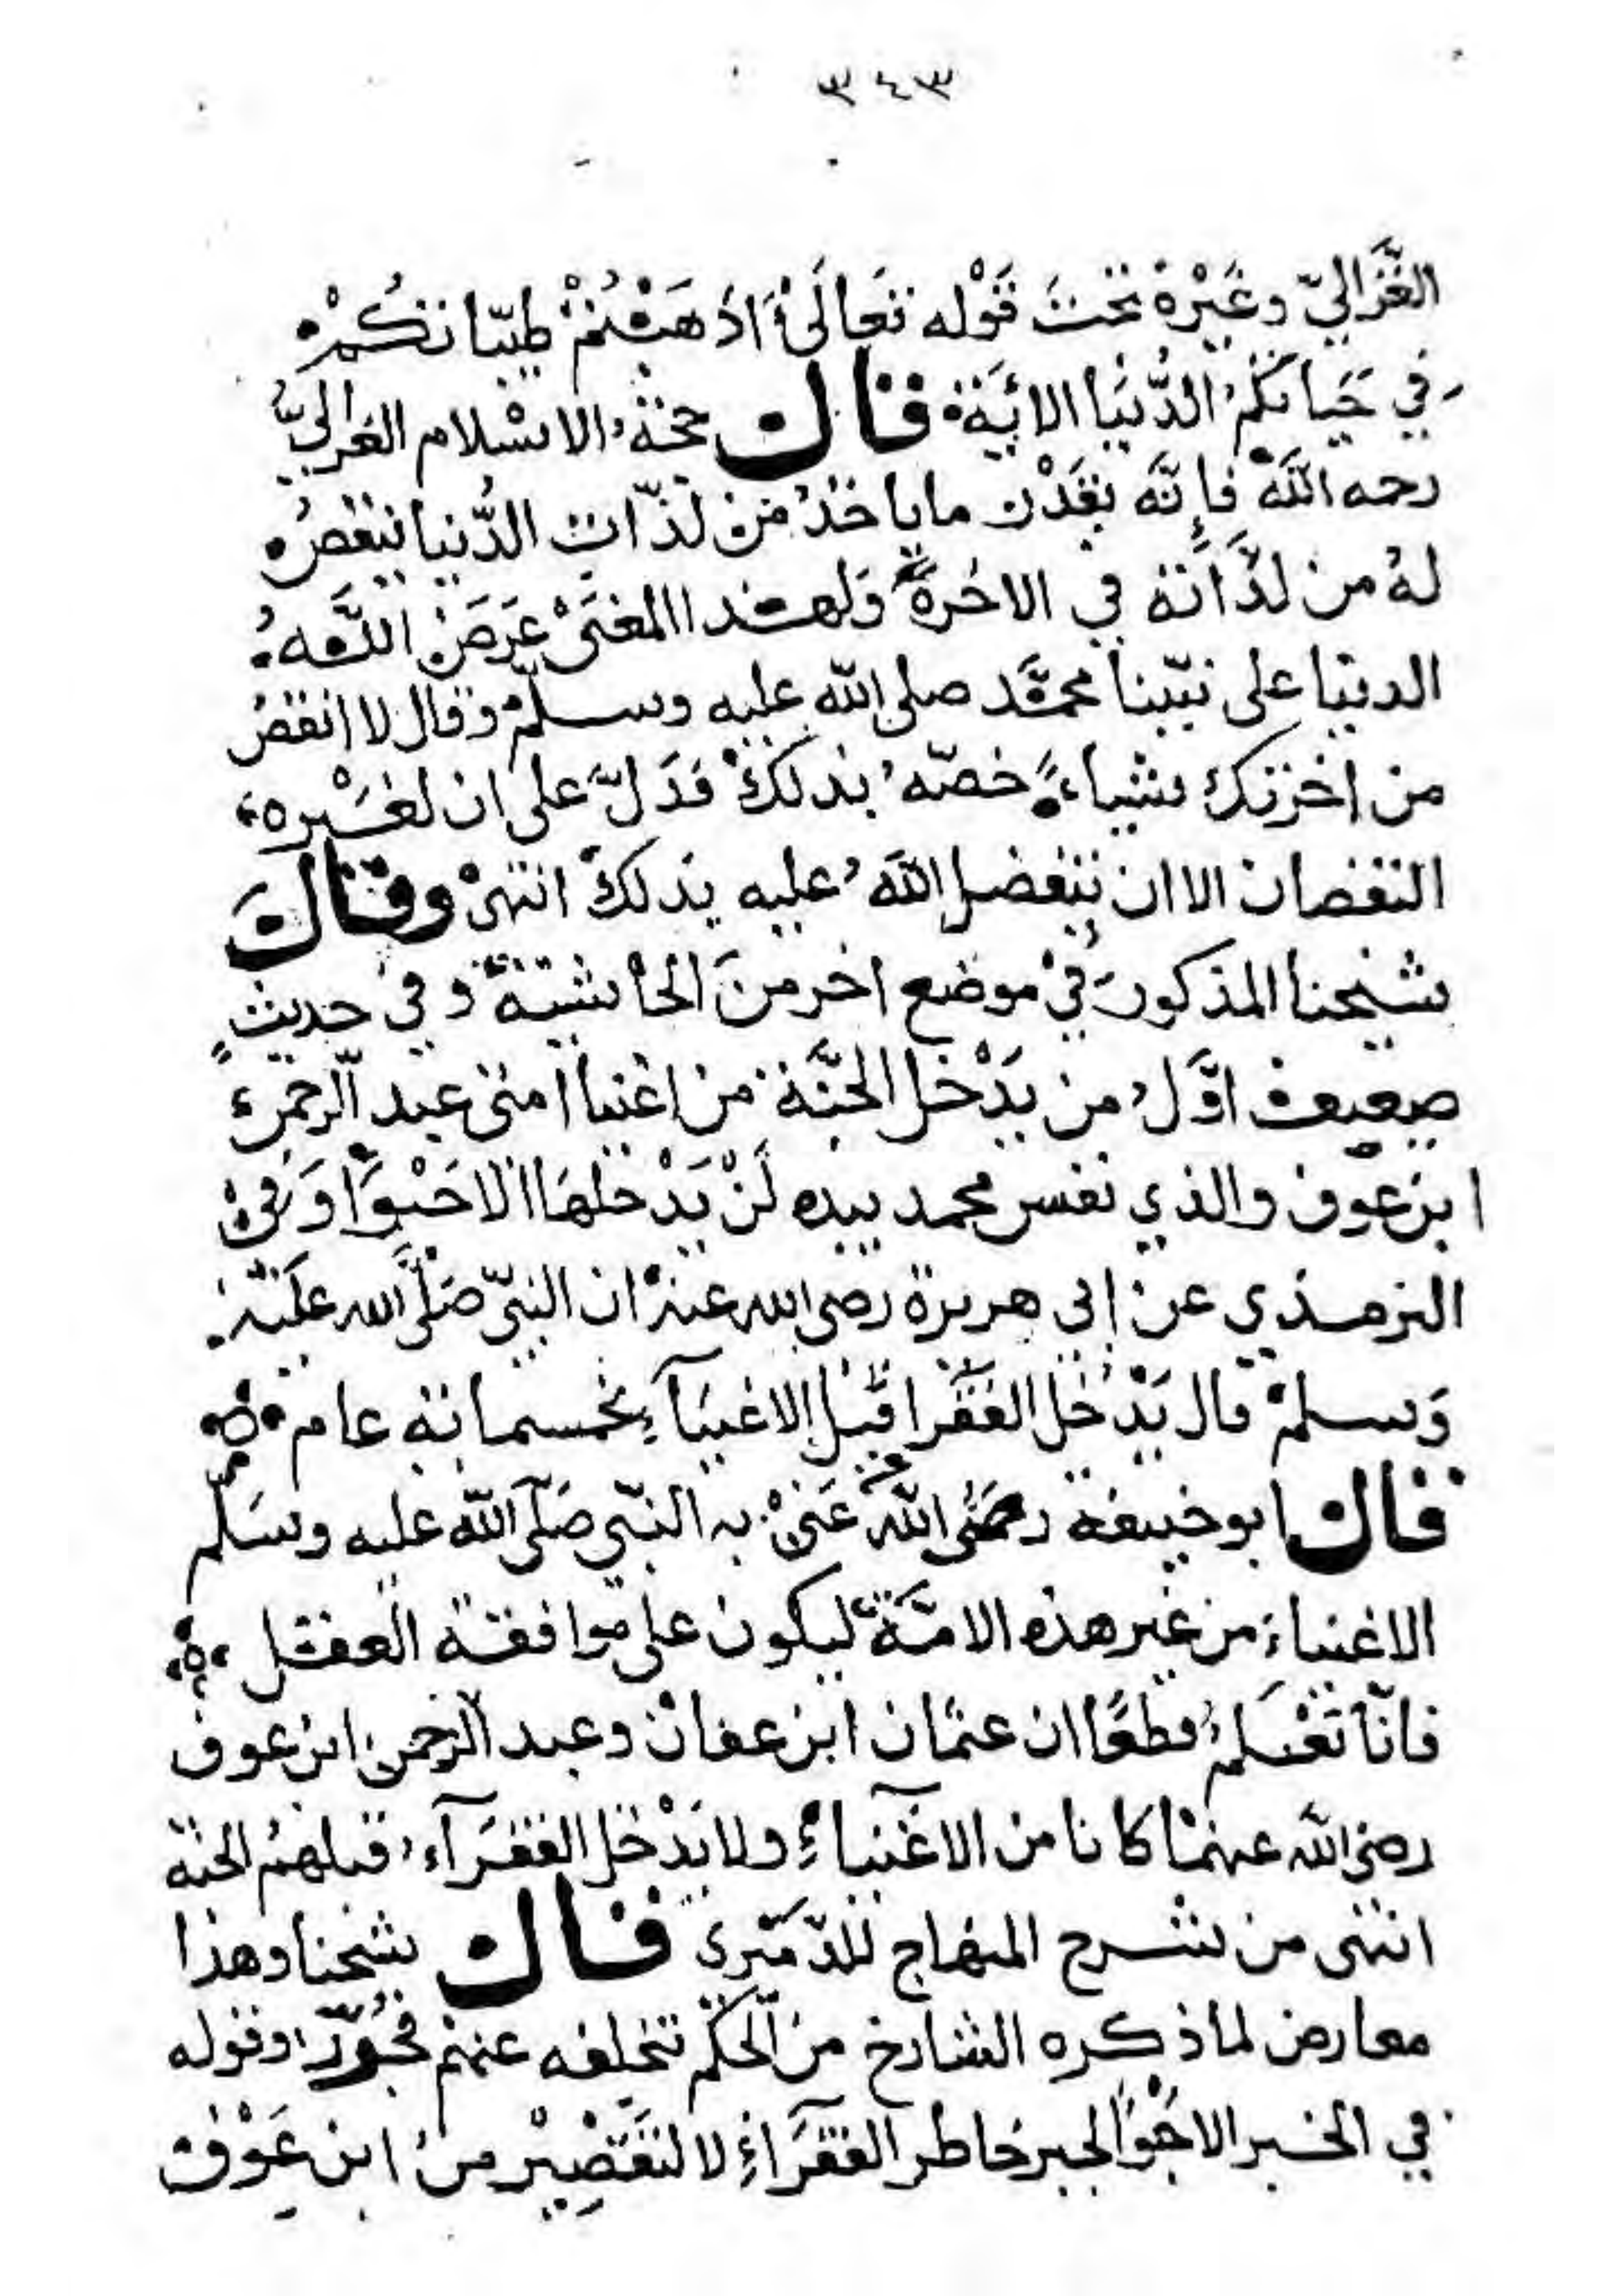 ٣٤٣
الغَزَّاليّ وغَيْرهُ تحتَ قَوْله تَعالَى اَذهَبْتُمْ طيّباتكُمْ
في حَيَاتكمُ الدُّنيَا الايَة قال حجّة الاسْلام الغزاليُّ
رحمه اللّٰهُ فإنَّه بقَدْر ما ياخذُ منْ لذّات الدُّنيا ينقصُ
لهُ من لذَّاته في الاخرة وَلهذا المعنَى عَرَضَ اللّٰه
الدنيا على نبيّنا محمَّد صلى اللّٰه عليه وسلمْ وقال لا انقصُ
من اخرتك شياءً خصّهُ بذلكَ فدَلَّ على ان لغَيْره
النقصان الا ان يتفضل اللّٰهُ عليه بذلكَ انتهىْ وقالَ
شيخنا المذكورَ فيْ موضع اخر منَ الحاشية وفي حديثٍ
ضعيف اوَّلُ من يَدْخل الجنَّة من اغنيا امتى عبد الرحمن
ابن عوف والذي نفس محمد بيده لَنْ يَدْخلهَا الا حَبْوًا وَفىْ
الترمذي عن ابي هريرة رضى الله عنهْ ان النبيّ صَلَّى الله عليْه
وَسلمْ قال يَدْخُل الفقَرا قبْل الاغنيَآءِ بخمسمائة عام
قال ابو حنيفة رضَى اللّٰهُ عَنْهُ عَنىْ به النبّي صَلّى اللّٰه عليه وسَلم
الاغنياءَ من غير هذه الامَّة ليكون على موافقة العقل
فانّا نَعْلمُ قطعًا ان عثمان ابن عفانْ وعبد الرحمنِ ابن عوف
رضى اللّٰه عنهمَا كانا من الاغنياءِ ولا يَدْخل الفقرَآءُ قبلهمُ الجنة
انتهى من شرح المنهاج للدّمَيْري قال شيخنا وهذا
معارض لما ذكره الشارح من الحكْم بتخلفه عنهم فجُوّز او قوله
في الخبر الا حَبْوًا لجبر خاطر الفقَرَاءِ لا لتَقَصِيْر منُ ابن عَوْف